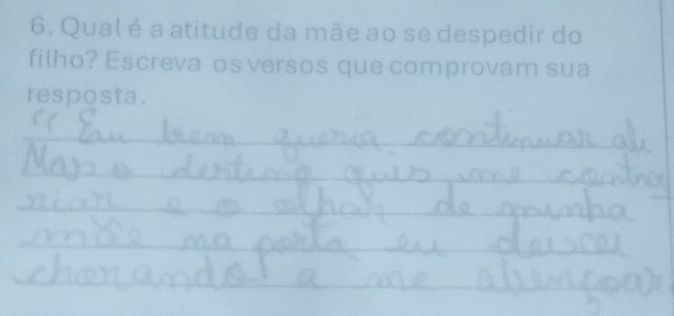 6. Qual é a atitude da mãe ao se despedir do
filho? Escreva os versos que comprovam sua
resposta.
"Eu bem queria continuar ali
Mas o destino quis me contra
riar e o olhar de minha
mãe na porta eu deixei
chorando a me abençoar